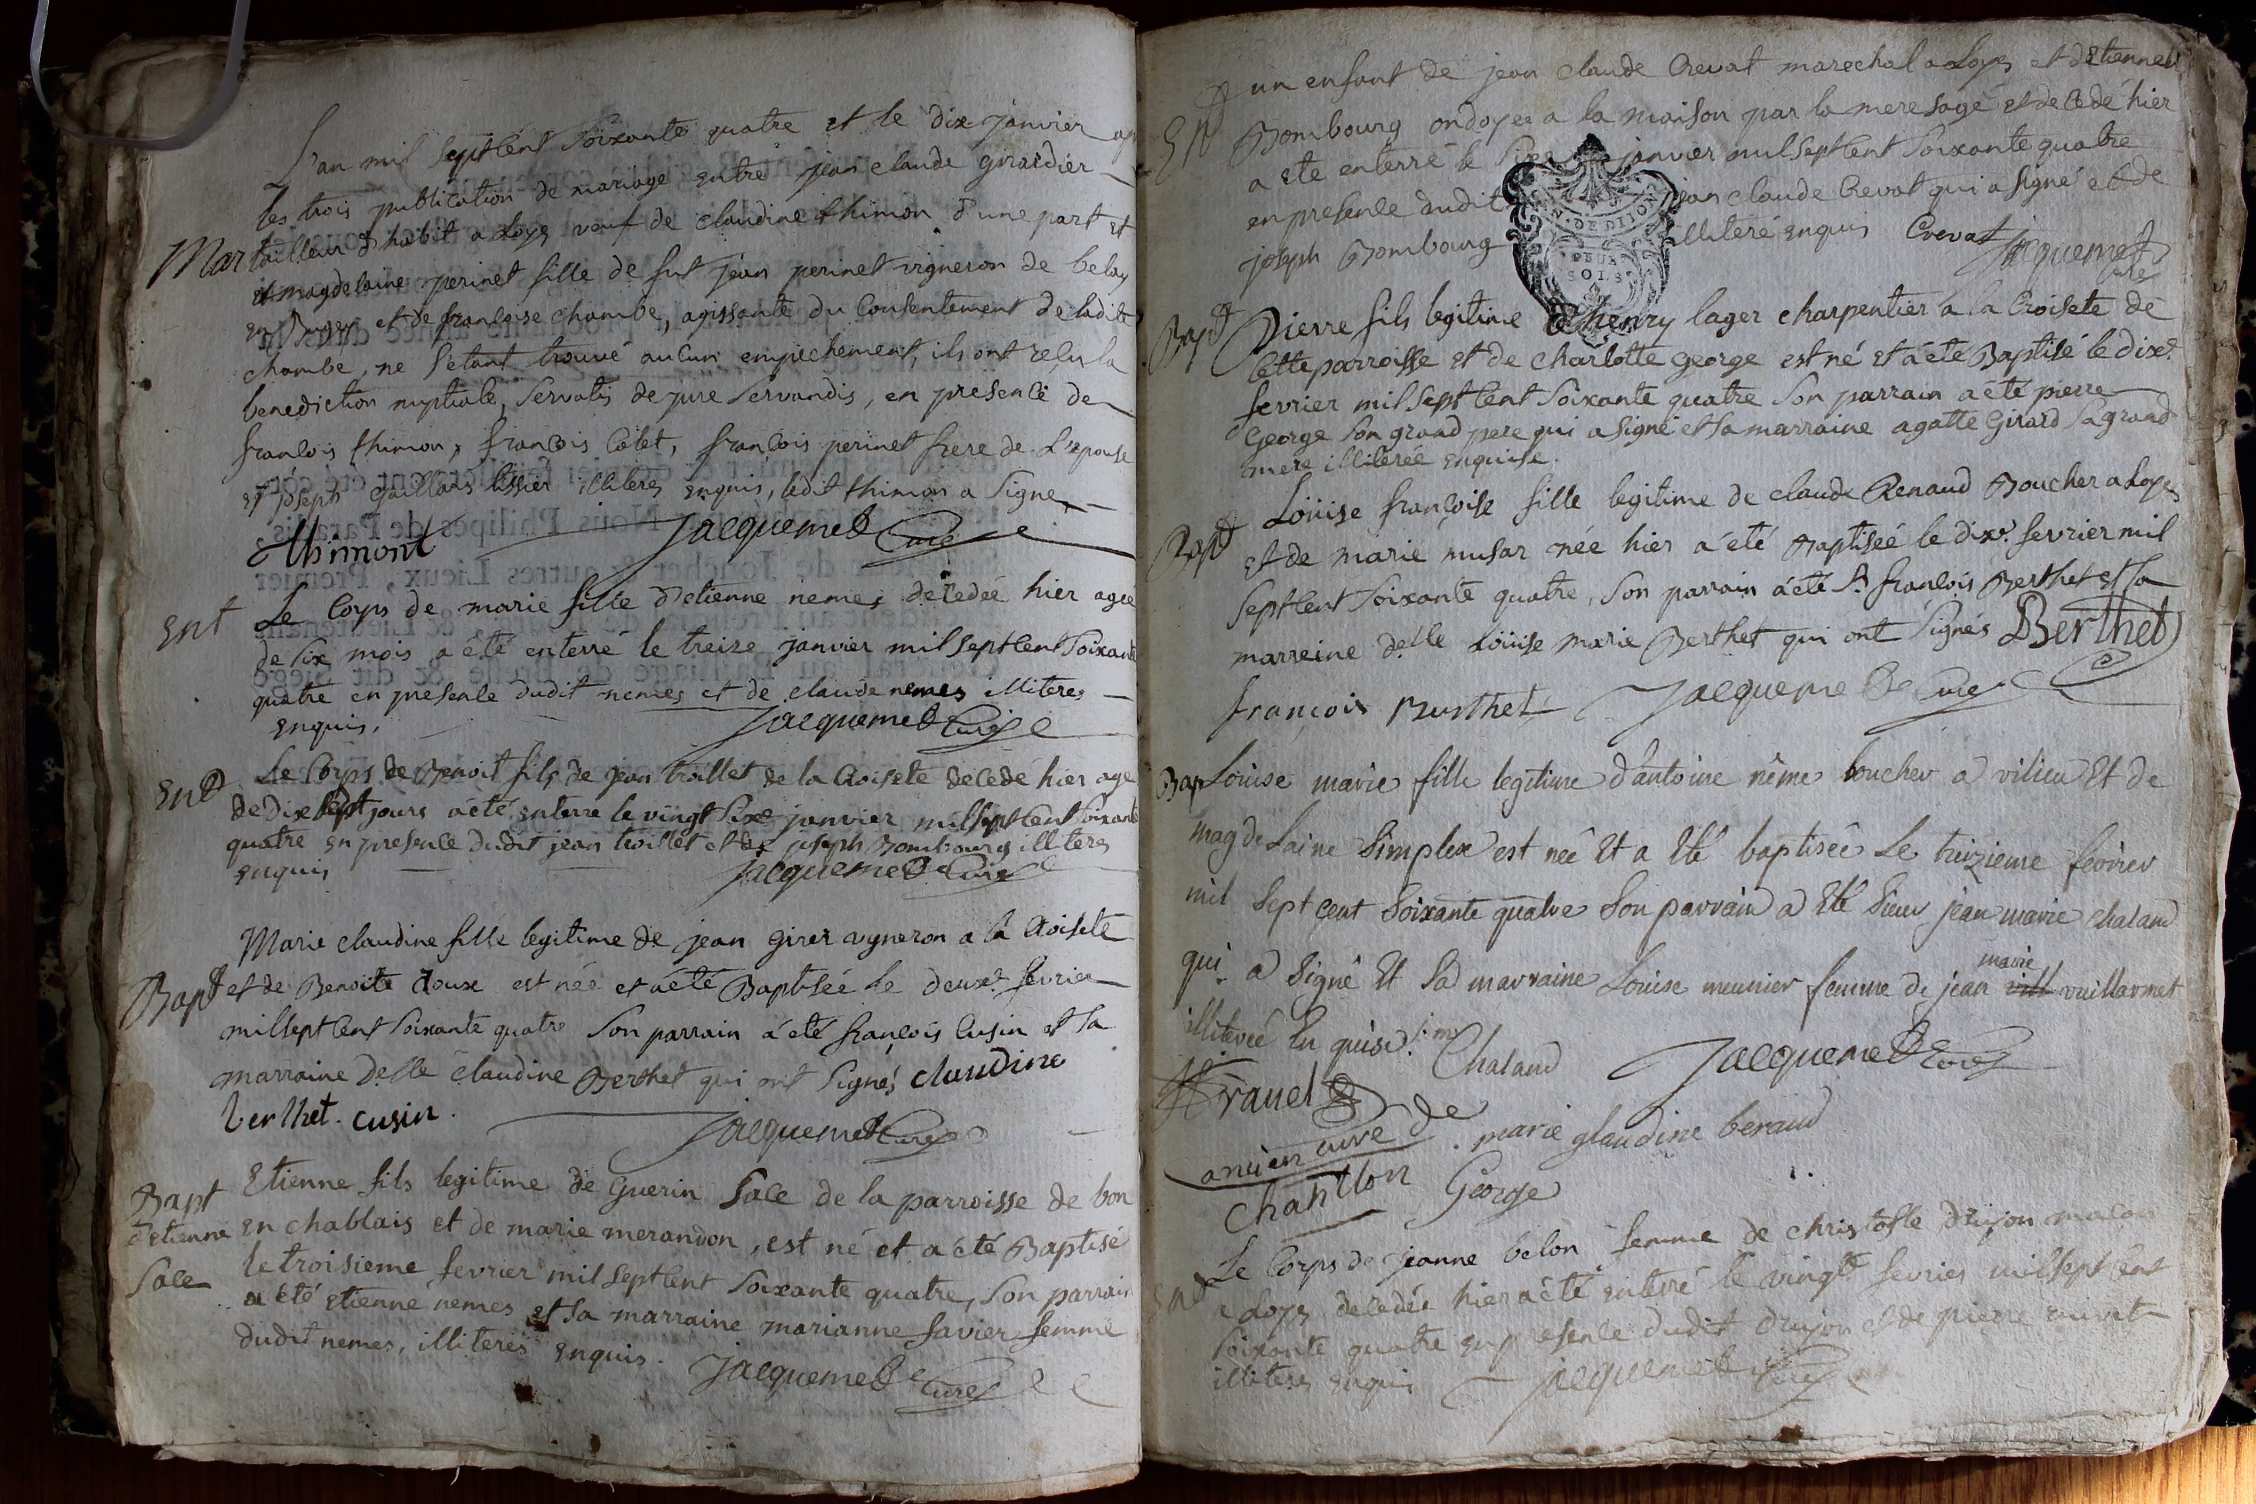 L'an mil septcent soixante quatre et le dix janvier ap
les trois publication de mariage entre jean claude girardier
Mar tailleur d'habit a Loyes veuf de claudine thimon d'une part et
et magdelaine perinet fille de fut jean perinet vigneron de belay
en bugey et de francoise chambe, agissante du consentement de ladite
chambe, ne s'etant trouvé aucun empechement, ils ont reçus la
benediction nuptiale, servatis de jure servandis, en presence de
francois thimon, francois Colet, francois perinet frere de L'epouse
et joseph Gaillard tissier illiteres enquis, ledit thimon a signe
thimont Jacquemet Curé
Ent Le Corps de marie fille d'etienne nemes decedée hier agee
de six mois a été enterré le treize janvier mil septcent soixante
quatre en presence dudit nemes et de claude nemes illiteres
enquis. Jacquemet Curé
Ent Le Corps de Benoit fils de jean trollet de la Croisete decede hier age
de dix sept jours a été enterre le vingt sixe janvier mil septcent soixante
quatre en presence dudit jean trollet et de joseph Bombourg illiteres
enquis Jacquemet Curé
Marie claudine fille legitime de jean girer vigneron a la Croisete
Bapt et de Benoite doux est née et a été Baptisée le deuxe fevrier
mil septcent soixante quatre son parrain a été francois Cusin et sa
marraine Delle claudine Berthet qui ont signés claudine
berthet. cusin. Jacquemet Curé
Bapt Etienne fils legitime de Guerin Sace de la parroisse de bon
d'etienne en chablais et de marie merandon, est né et a été Baptisé
Sace le troisieme fevrier mil septcent soixante quatre, son parrain
a été etienne nemes et sa marraine marianne favier femme
dudit nemes, illiteres enquis. Jacquemet Curé
un enfant de jean claude Crevat marechal a Loyes et d'etiennete
Ent Bombourg ondoyee a la maison par la mere sage et decedé hier
a ete enterré le janvier mil septcent soixante quatre
en presence dudit jean claude Crevat qui a signé et de
joseph Bombourg illiteré enquis Crevat Jacquemet
curé
N. DE DIJON
DEUX
SOLS
Bapt Pierre fils legitime de henry lager charpentier a la Croisete de
cette parroisse et de charlotte George est né et a été Baptisé le dixe
fevrier mil sept cent soixante quatre son parrain a été pierre
George son grand pere qui a signé et sa marraine agatte Girard sa grand
mere illiterée enquise.
Bapt Loüise françoise fille legitime de claude Renaud Boucher a Loyes
et de marie musar née hier a été Baptisée le dixe. fevrier mil
septcent soixante quatre, son parrain a été Sr. francois Berthet et sa
marreine delle Loüise marie Berthet qui ont signés LBerthet
françois Burthet Jacquemet Curé
Bap Louise marie fille legitime d'antoine nême boucher a vilieu Et de
magdelaine Simplex est neê Et a Eté baptiseê Le treizieme fevrier
mil Sept cent Soixante quatre Son parrain a Eté Sieur jean marie chaland
qui a Signé Et Sa marraine Louise meunier femme de jean marie vuillarmet
illiterée En quise. j.m Chaland Jacquemet Curé
ancien curé de
Chatillon George marie glaudine beraud
Ent Le Corps de Jeanne belon femme de christofle Drujon macon
a Loyes decedée hier a été enterré le vingte fevrier mil sept cent
soixante quatre en presence dudit Drujon et de pierre
illiteres enquis Jacquemet Curé